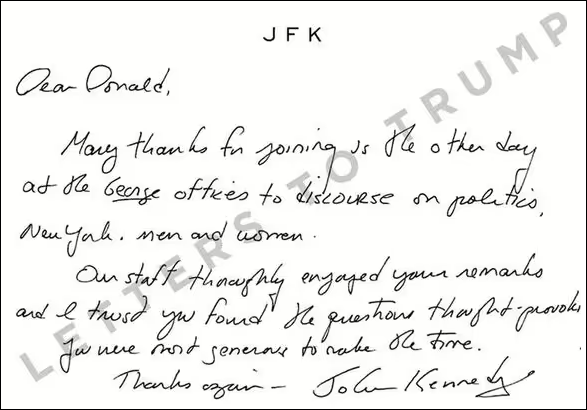 JFK
Dear Donald,
Many thanks for joining us the other day
at the George offices to discourse on politics,
New York, men and women.
Our staff thoroughly engaged your remarks
and I trust you found the questions thought-provoking
You were most generous to make the time.
Thanks again — John Kennedy
LETTERS TO TRUMP